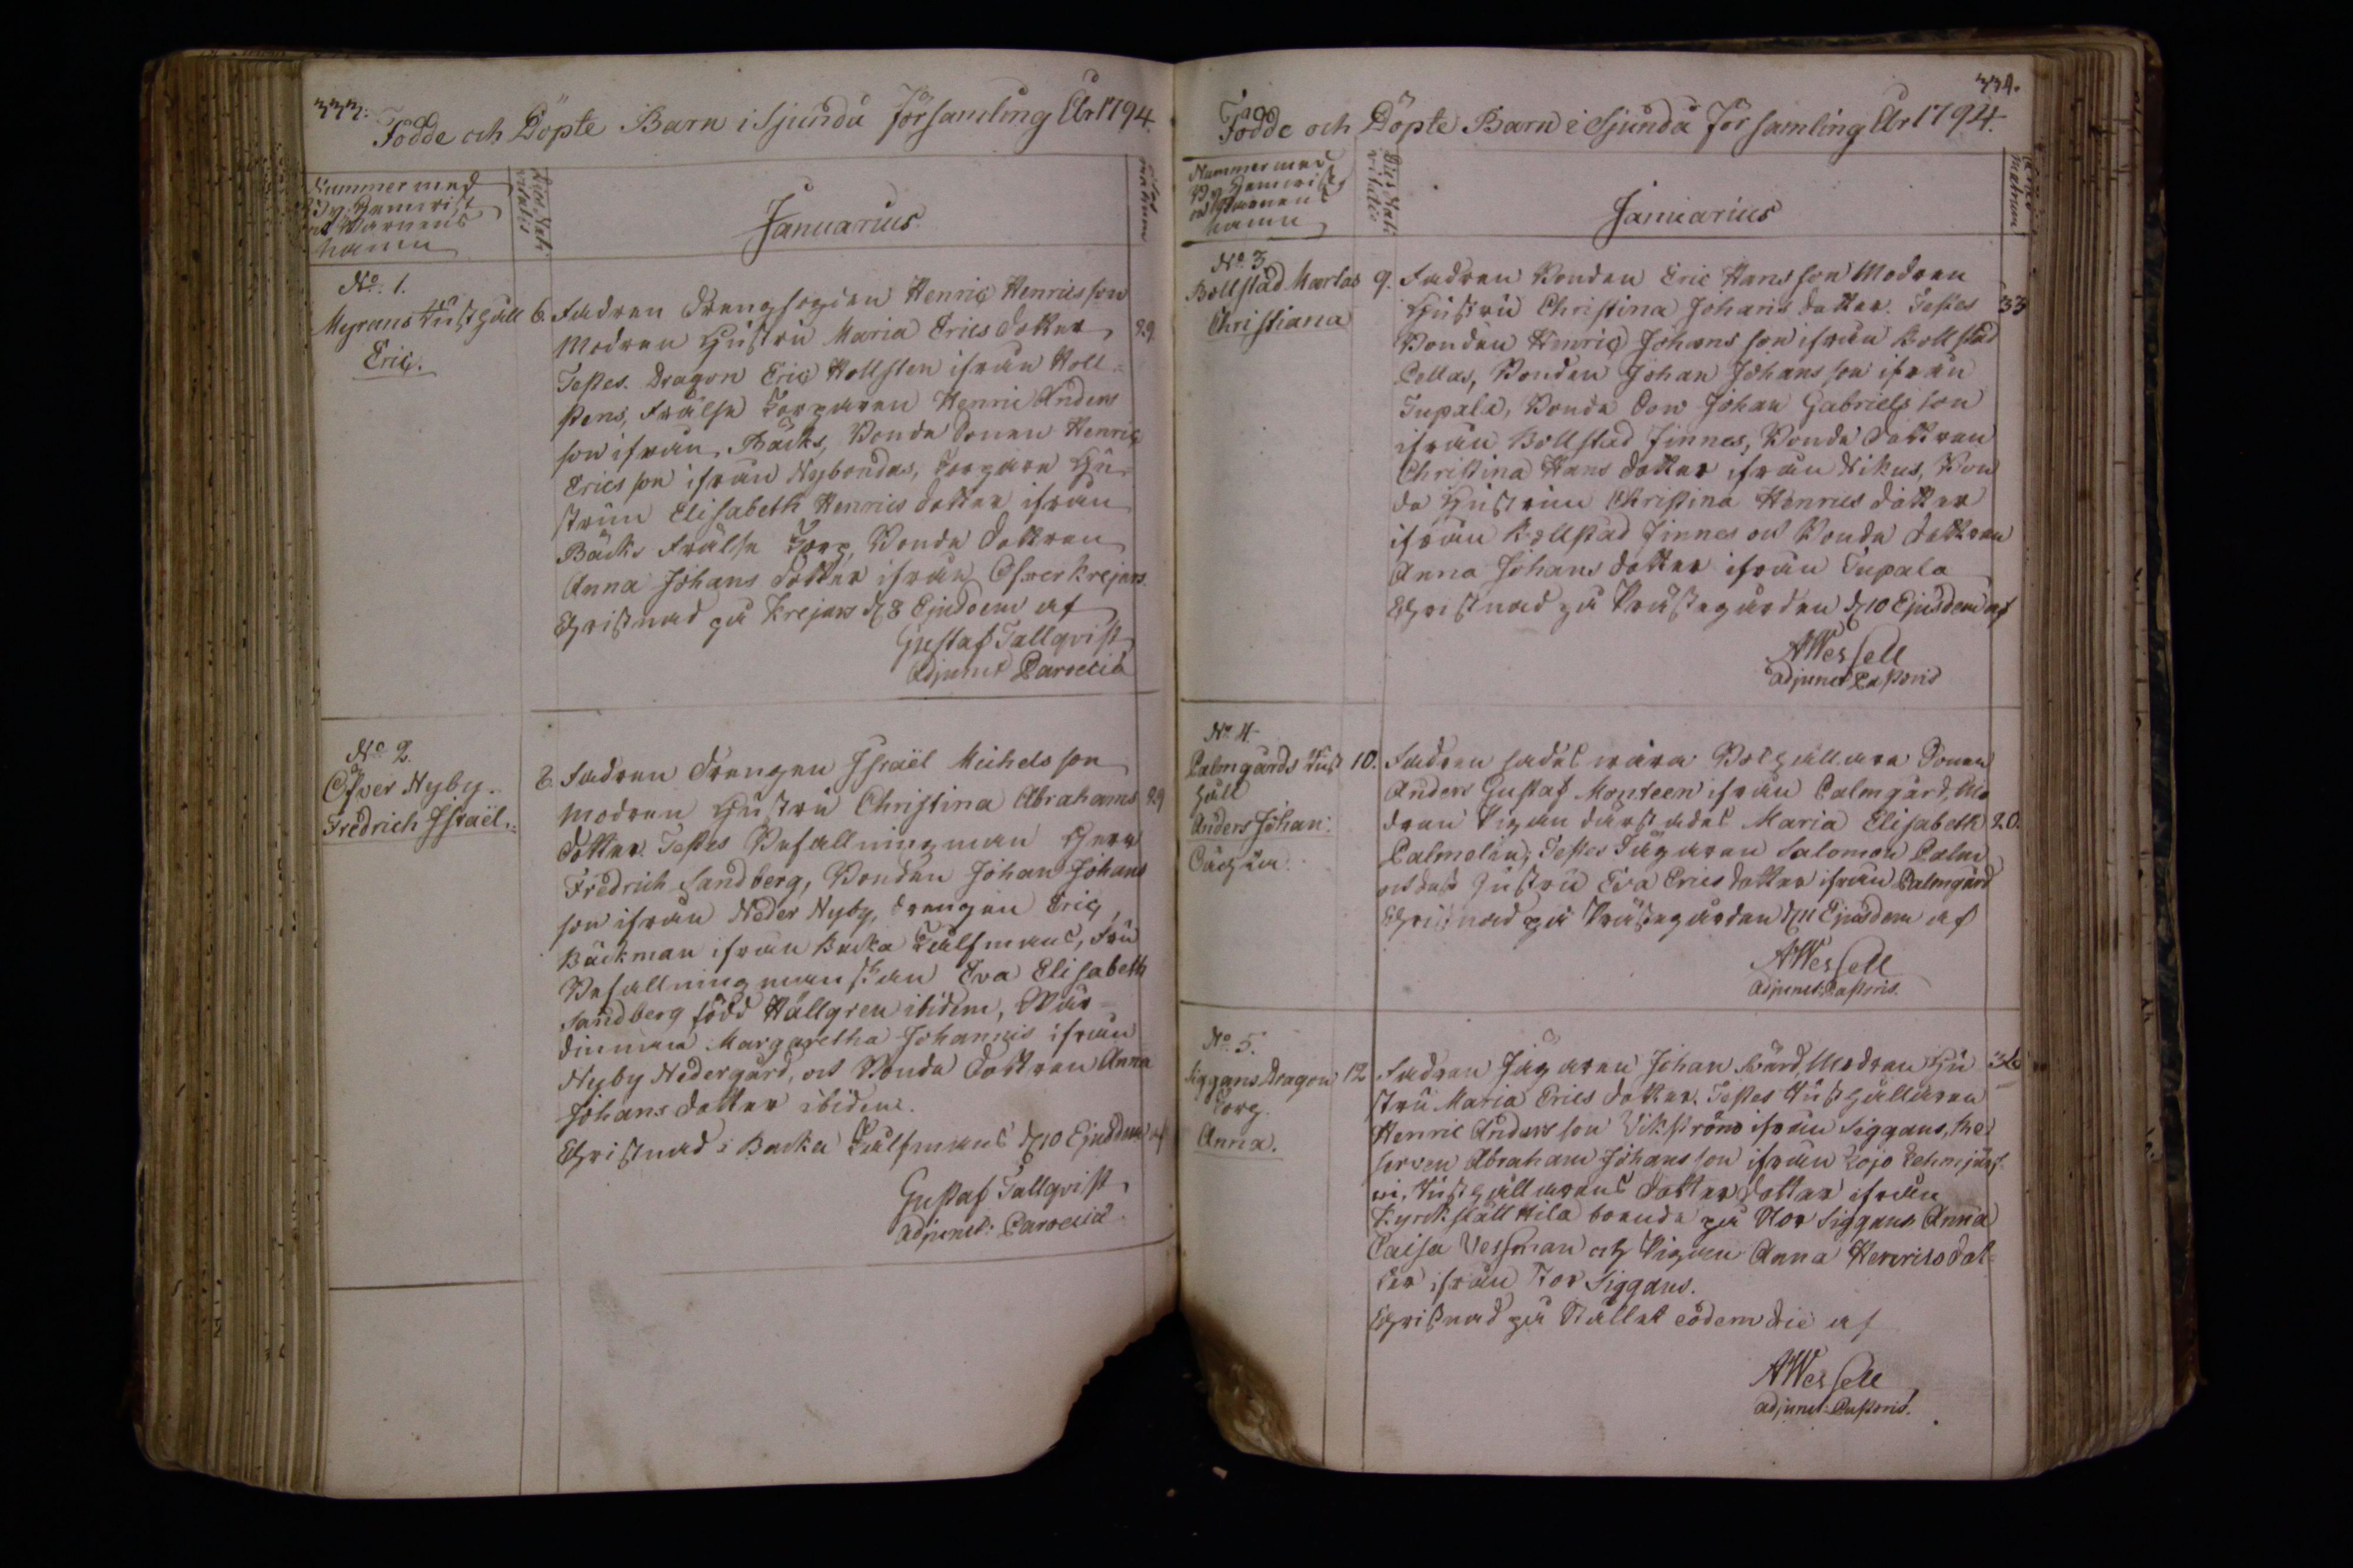 333.
Födde och Döpte Barn i Sjundå Församling År 1794.
Nummer med
By, Hemvist
och Barnens
namn
Januarius
No. 1.
Myrans Rusthåll
Eric.
6. Fadren Drengfogden Henric Henricsson
Modren Hustru Maria Ericsdotter 29
Testes. Dragon Eric Hollsten ifrån Holl=
stens, Frälse Torparen Henric Anders
son ifrån Bäcks, Bonde Sonen Henric
Ericsson ifrån Nybondas, Torpare Hu-
strun Elisabeth Henrics dotter ifrån
Bäcks Frälse Torp, Bonde Dottren
Anna Johans dotter ifrån Öfver Krejans.
Christnad på Krejans d. 8 Ejusdem af
Gustaf Tallqvist
Adjunct Paroecia
No 2.
Öfver Nyby.
Fredrich Israël.
6 Fadren Drengen Israël Michelsson
Modren Hustru Christina Abrahams 29
dotter. Testes Befallningsman Herr
Fredrich Sandberg, Bonden Johan Johans
son ifrån Neder Nyby, Drengen Eric
Bäckman ifrån Backa, Fru
Befallningsmanskan Eva Elisabeth
Sandberg född Hällgren ibidem, Wär=
dinnan Margaretha Johannis ifrån
Nyby Nedergård, och Bonde Dottren Anna
Johans dotter ibidem.
Christnad i Backa d. 10 Ejusdem af
Gustaf Tallqvist
Adjunct: Paroecia
334.
Födde och Döpte Barn i Sjundå Församling År 1794.
Nummer med
By, Hemvist
och Barnens
namn
Januarius
No. 3
Bollstad Martas
Christiana
9. Fadren Bonden Eric Hansson Modren
Hustru Christina Johans dotter. Testes 33
Bonden Henric Johansson ifrån Bollstad
Pellas, Bonden Johan Johansson ifrån
Tupala, Bonde Son Johan Gabrielsson
ifrån Bollstad Finnes, Bonde Dottren
Christina Hans dotter ifrån Nikus, Bon
de Hustrun Christina Henrics dotter
ifrån Bollstad Finnes och Bonde Dottren
Anna Johans dotter ifrån Tupala
Christnad på Prästegården d. 10 Ejusdem af
AWessell
Adjunct Pastoris
No. 4.
Palmgårds Rust
håll
Anders Johan.
10. Fadren sades wara Sonen
Anders Gustaf ifrån Palmgård, Mo
dren Pigan därstädes Maria Elisabeth 20.
Palmolin, Testes Jägaren Salomon Palm
och dess hustru Eva Ericsdotter ifrån Palmgård
Christnad på Prästegården d. 11 Ejusdem af
AWessell
Adjunct: Pastoris.
No. 5.
Siggans Dragon
Torp.
Anna.
12 Fadren Jägaren Johan Modren Hu 36
stru Maria Ericsdotter. Testes Rusthållaren
Henric Andersson Vikström ifrån Siggans, Re
serven Abraham Johansson ifrån Lojo
Rusthållarens Dotter dotter ifrån
Kyrckslätt boende på Stor Siggans Anna
Caisa Vessman och Pigan Anna Henricsdot
ter ifrån Stor Siggans.
Christnad på Stället eodem die af
AWessell
adjunct: Pastoris.